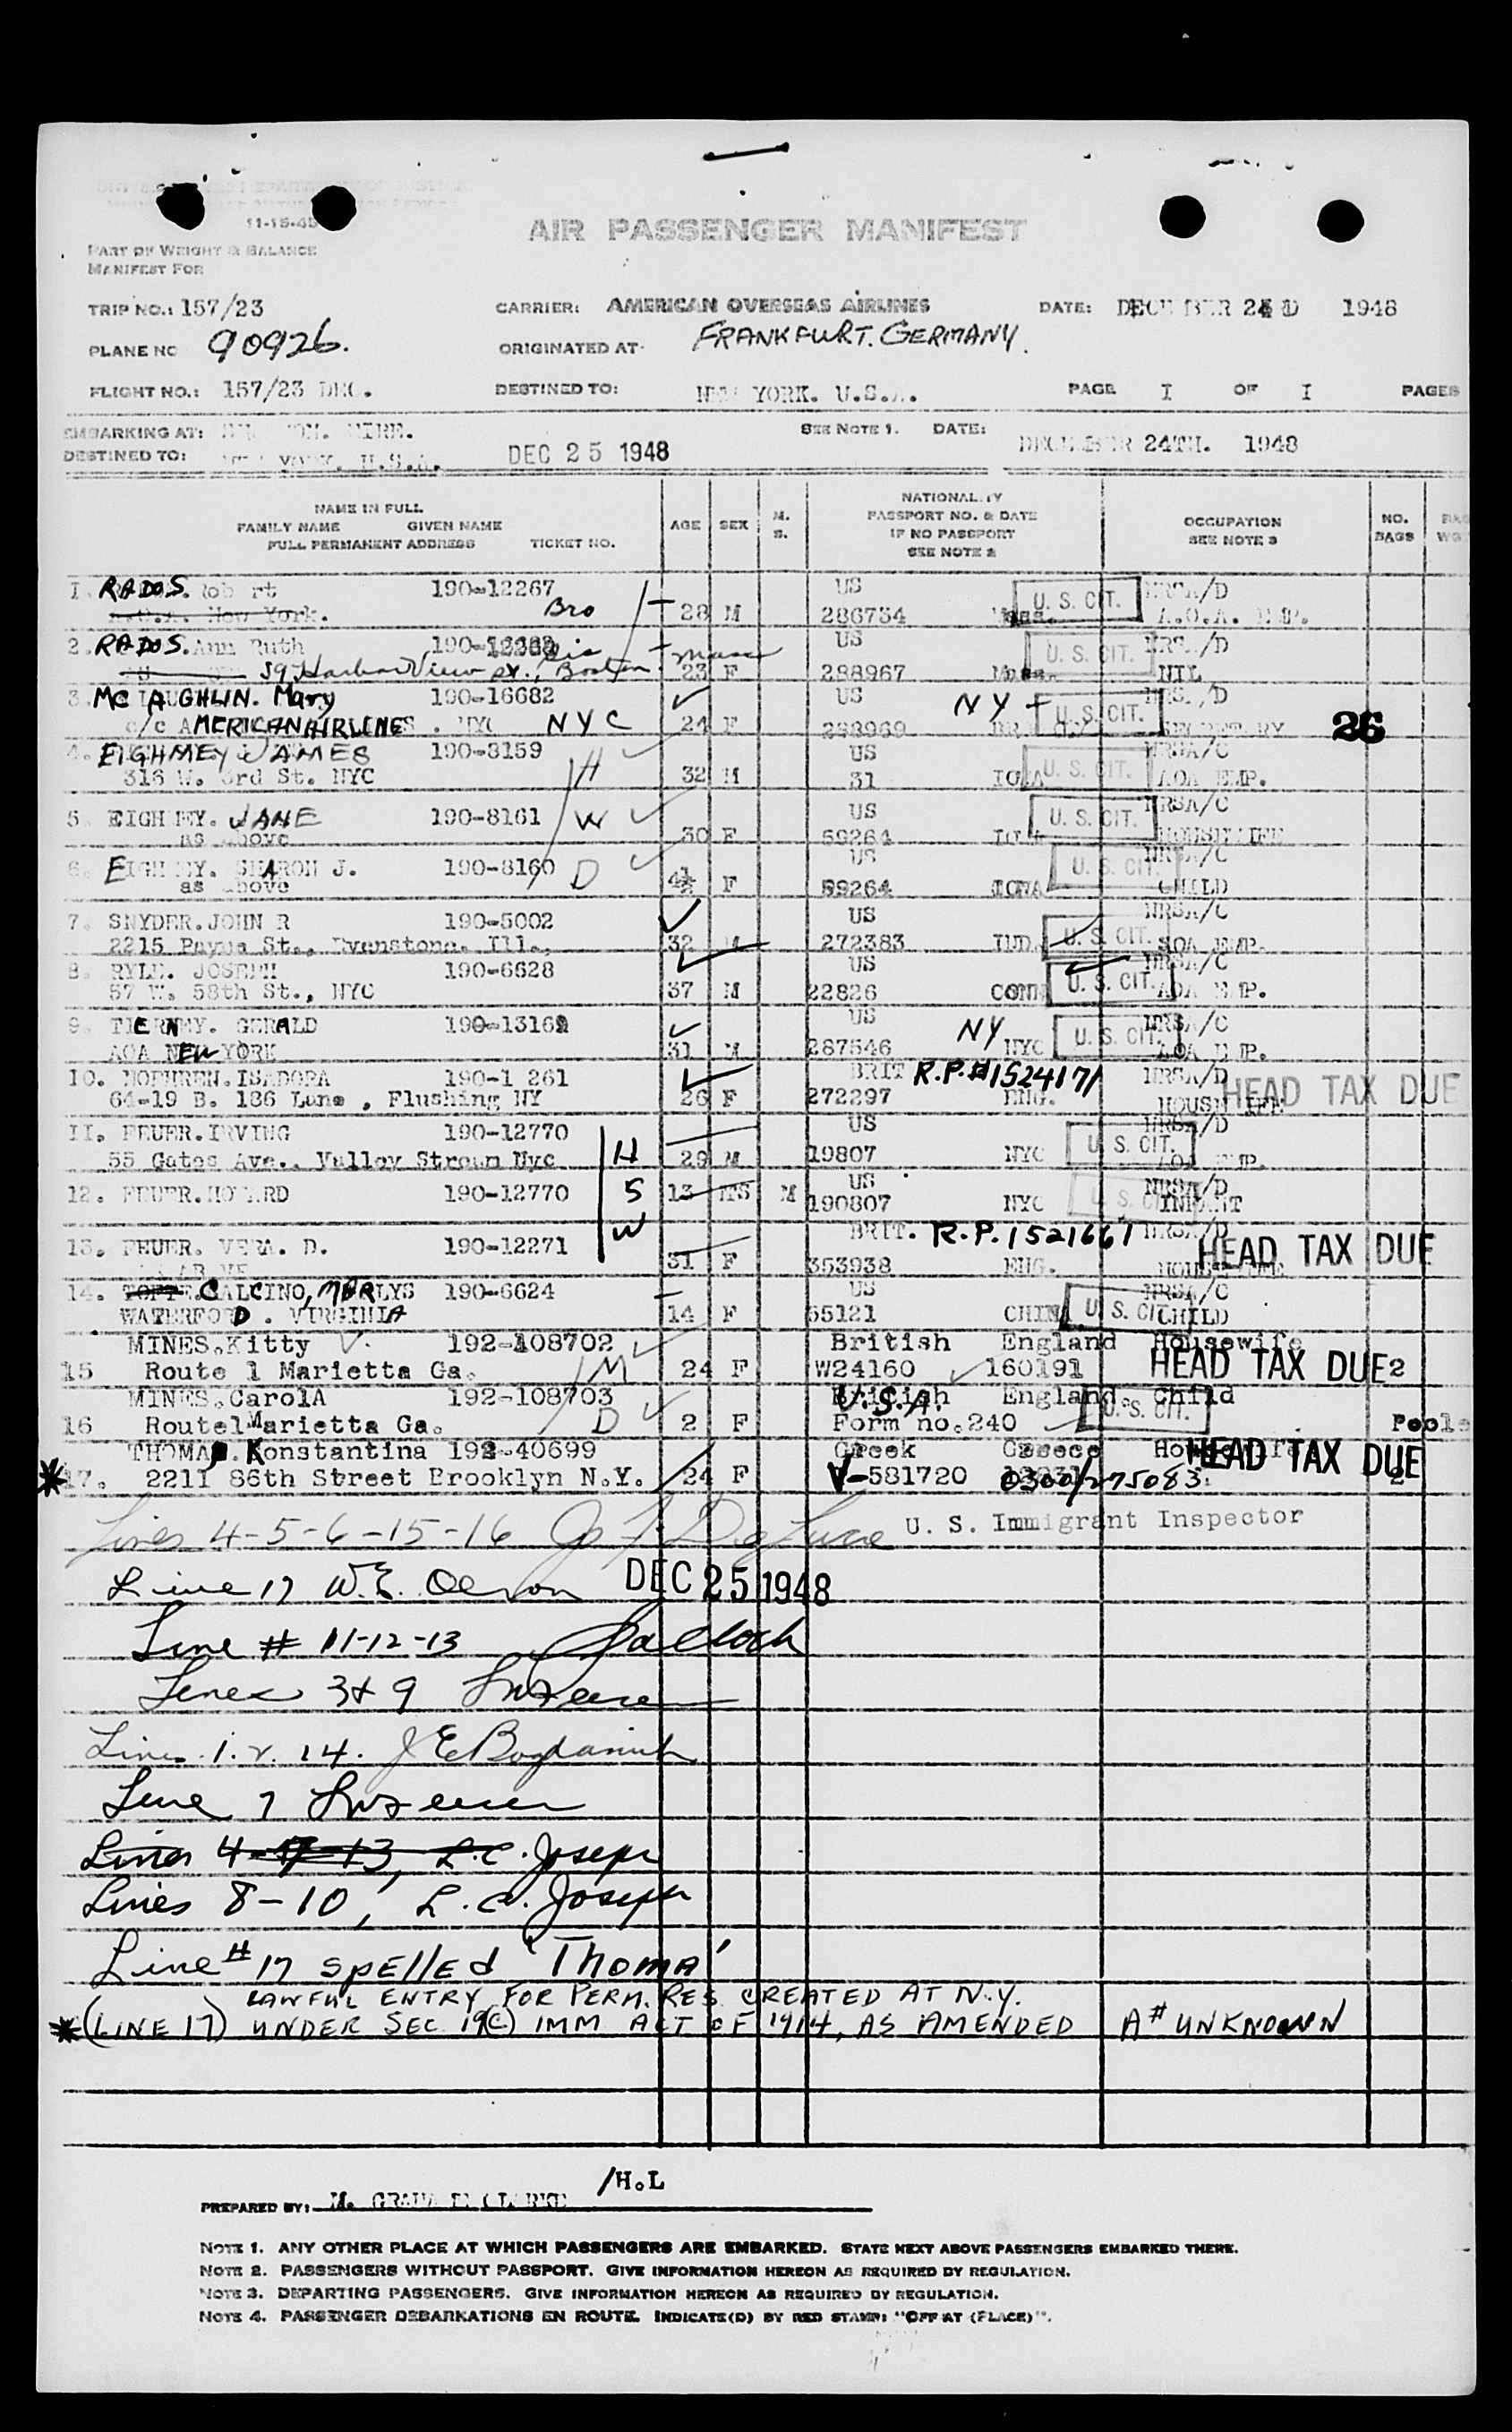 11-15-45
AIR PASSENGER MANIFEST
PART OF WEIGHT & BALANCE
MANIFEST FOR
TRIP NO.: 157/23 CARRIER: AMERICAN OVERSEAS AIRLINES DATE: 1948
PLANE NO 90926. ORIGINATED AT: FRANKFURT. GERMANY.
FLIGHT NO.: 157/23 DEC. DESTINED TO: NEW YORK. U.S.A. PAGE I OF I PAGES
EMBARKING AT: SEE NOTE 1. DATE: DECEMBER 24TH. 1948
DESTINED TO: NEW YORK. U.S.A. DEC 25 1948
NAME IN FULL
FAMILY NAME GIVEN NAME
FULL PERMANENT ADDRESS TICKET NO.
AGE SEX M. S.
NATIONALITY
PASSPORT NO. & DATE
IF NO PASSPORT
SEE NOTE 2
OCCUPATION
SEE NOTE 3
NO. BAGS
1. RADOS. Robert 190-12267 US U. S. CIT.
New York. Bro 28 M 286734 A.O.A. EMP.
2. RADOS. Ann Ruth 190- Sis US U. S. CIT.
59 Harbor View St., Boston Mass 23 F 288967 NIL
3. MC LAUGHLIN. Mary 190-16682 US NY U. S. CIT.
c/c AMERICAN AIRLINES. NYC NYC 24 F 288969 SECRETARY 26
4. EIGHMEY JAMES 190-8159 H US NRSA/C
316 W. 3rd St. NYC 32 M 31 IOWA U. S. CIT. AOA EMP.
5. EIGHMEY. JANE 190-8161 W US NRSA/C
as above 30 F 59264 U. S. CIT. HOUSEWIFE
6. EIGHMEY. SHARON J. 190-8160 D US NRSA/C
as above 4½ F 59264 IOWA U. S. CIT. CHILD
7. SNYDER. JOHN R 190-5002 US NRSA/C
2215 Payne St., Evenstone. Ill., 32 M 272383 IND. U. S. CIT. AOA EMP.
8. RYLE. JOSEPH 190-6628 US NRSA/C
57 W. 58th St., NYC 37 M 22826 CONN U. S. CIT. AOA EMP.
9. TIERNEY. GERALD 190-13162 US NY NRSA/C
AOA NEW YORK 31 M 287546 NYC U. S. CIT. AOA EMP.
10. ISADORA 190-1 261 BRIT R.P.#1524171 NRSA/D
64-19 B. 186 Lane , Flushing NY 26 F 272297 ENG. HOUSEWIFE HEAD TAX DUE
11. FEUER. IRVING 190-12770 US NRSA/D
55 Gates Ave., Valley Stream Nyc H 29 M 19807 NYC U. S. CIT. AOA EMP.
12. FEUER. HOWARD 190-12770 S 13 MS M US NRSA/D
190807 NYC U. S. CIT. INFANT
13. FEUER. VERA. D. 190-12271 W BRIT. R.P. 1521661 NRSA/D
31 F 353938 ENG. HOUSEWIFE HEAD TAX DUE
14. CALCINO, MERLYS 190-6624 US NRSA/C
WATERFORD. VIRGINIA 14 F 55121 CHINA U. S. CIT. CHILD
MINES.Kitty 192-108702 British England Housewife
15 Route 1 Marietta Ga. M 24 F W24160 160191 HEAD TAX DUE 2
MINES.CarolA 192-108703 U.S.A. England Child
16 Route1Marietta Ga. D 2 F Form no.240 U. S. CIT. Poole
THOMA. Konstantina 192-40699 Greek Greece Housewife
*17. 2211 86th Street Brooklyn N.Y. 24 F V-581720 0300/275083 HEAD TAX DUE 2
Lines 4-5-6-15-16 U. S. Immigrant Inspector
Line 17 W.E. DEC 25 1948
Line # 11-12-13
Lines 3 & 9
Lines. 1. 2. 14.
Line 7
Lines 4-7-13, L.C. Joseph
Lines 8-10, L.C. Joseph
Line #17 spelled 'Thoma'
LAWFUL ENTRY FOR PERM. RES CREATED AT N.Y.
*(LINE 17) UNDER SEC 19(C) IMM ACT OF 1914, AS AMENDED A# UNKNOWN
/H.L
PREPARED BY: M.
NOTE 1. ANY OTHER PLACE AT WHICH PASSENGERS ARE EMBARKED. STATE NEXT ABOVE PASSENGERS EMBARKED THERE.
NOTE 2. PASSENGERS WITHOUT PASSPORT. GIVE INFORMATION HEREON AS REQUIRED BY REGULATION.
NOTE 3. DEPARTING PASSENGERS. GIVE INFORMATION HEREON AS REQUIRED BY REGULATION.
NOTE 4. PASSENGER DEBARKATIONS EN ROUTE. INDICATE(D) BY RED STAMP: "OFF AT (PLACE)".